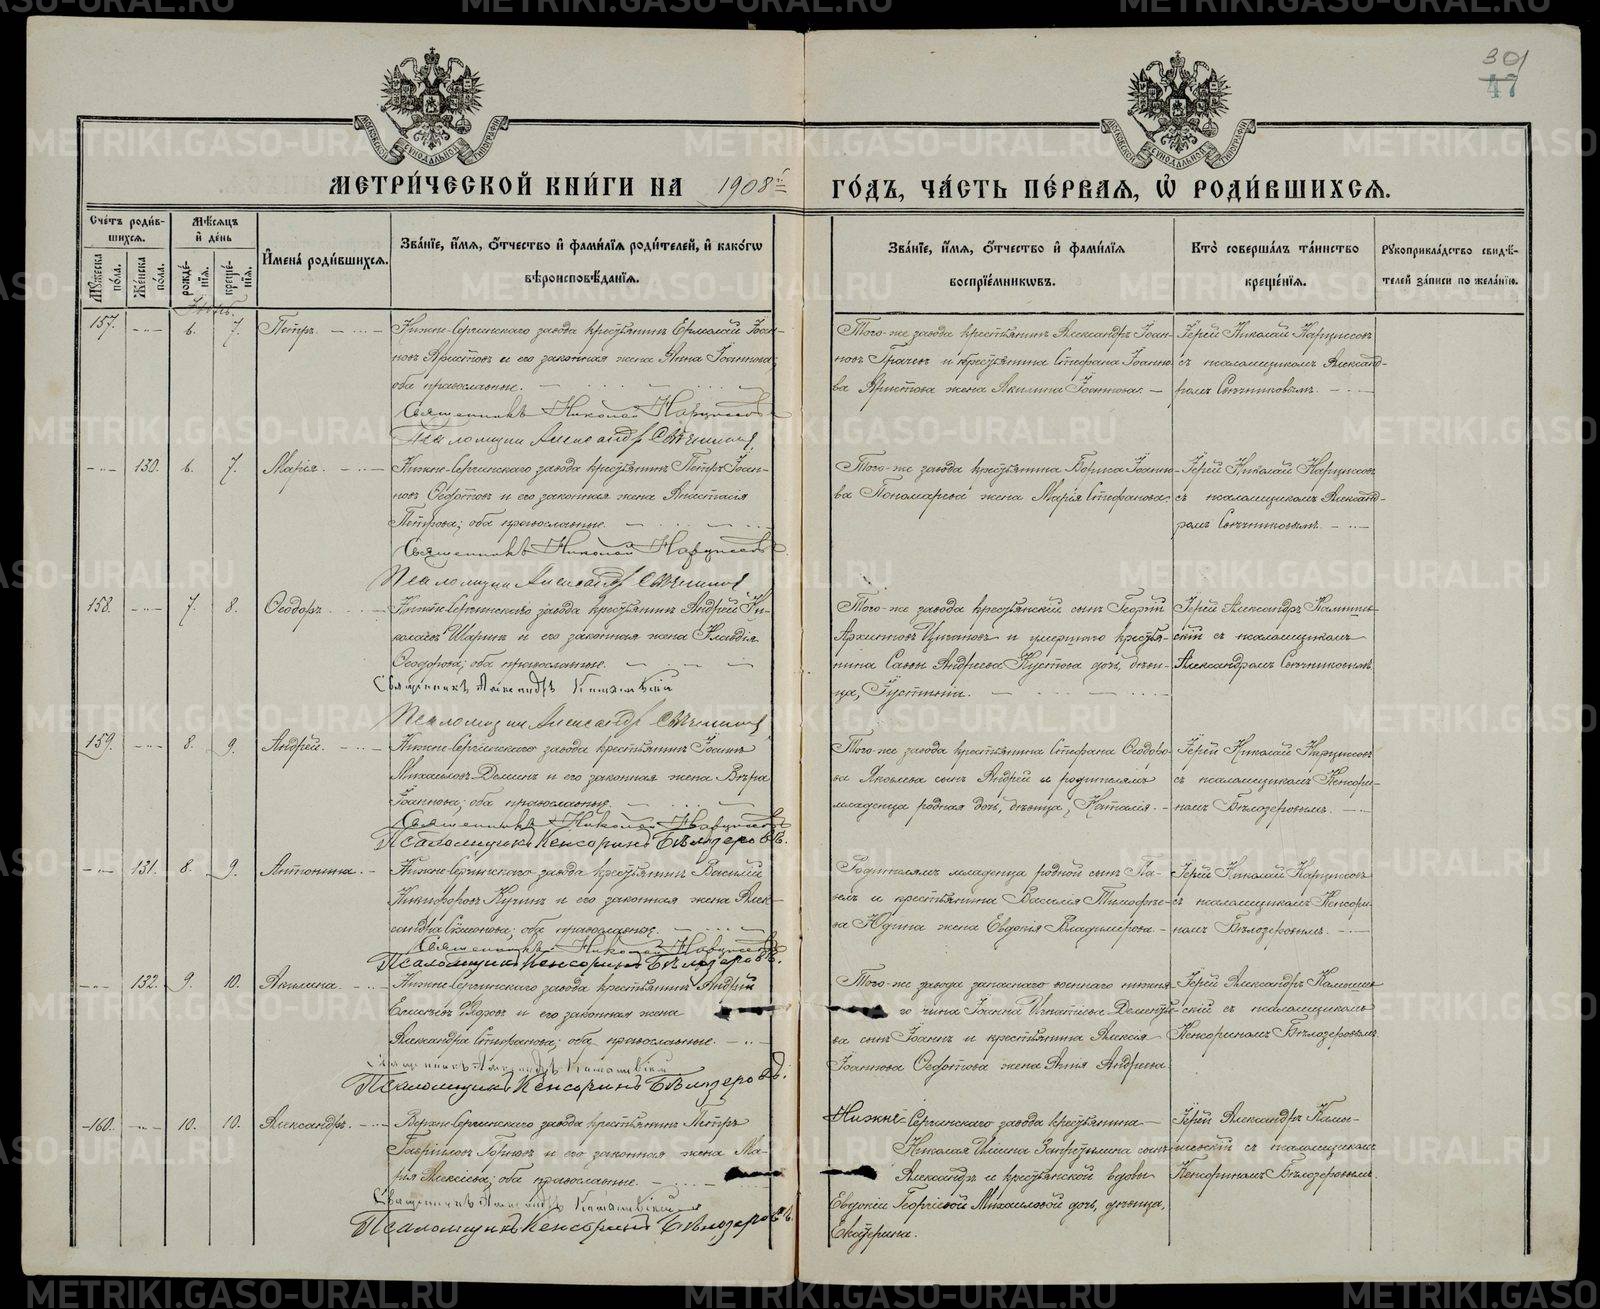 301
47
МОСКОВСКОЙ СѴНОДАЛЬНОЙ ТИПОГРАФІИ
МОСКОВСКОЙ СѴНОДАЛЬНОЙ ТИПОГРАФІИ
МЕТРИ́ЧЕСКОЙ КНИ́ГИ НА 1908й ГО́ДЪ, ЧА́СТЬ ПЕ́РВАЯ, Ѡ҆ РОДИ́ВШИХСЯ.
Сче́тъ роди́в-
шихся.
Мꙋ́жеска по́ла.
Же́нска по́ла.
Мѣ́сяцъ
и҆ де́нь
рожде́нїя.
креще́нїя.
И҆мена̀ роди́вшихся.
Зва́нїе, и҆́мя, ѻ҆́тчество и҆ фами́лїя роди́телей, и҆ како́гѡ
вѣроисповѣ́данїя.
Зва́нїе, и҆́мя, ѻ҆́тчество и҆ фами́лїя
воспрїе́мникѡвъ.
Кто̀ соверша́лъ та́инство
креще́нїя.
Рꙋкоприкла́дство свидѣ́-
телей за́писи по жела́нїю.
157. 6. 7. Петръ.
Нижне-Сергинскаго завода крестьянинъ Ермолай Іоан-
новъ Аристовъ и его законная жена Анна Іоаннова;
оба православные.
Священникъ Николай Нарциссовъ
Псаломщикъ Александръ Свѣчниковъ
Того-же завода крестьянинъ Александръ Іоан-
новъ Грачевъ и крестьянина Стефана Іоанно-
ва Аристова жена Акилина Іоаннова.
Іерей Николай Нарциссовъ
съ псаломщикомъ Александ-
ромъ Свѣчниковымъ.
130. 6. 7. Марія.
Нижне-Сергинскаго завода крестьянинъ Петръ Іоан-
новъ Ѳедотовъ и его законная жена Анастасія
Петрова; оба православные.
Священникъ Николай Нарциссовъ
Псаломщикъ Александръ Свѣчниковъ
Того-же завода крестьянина Бориса Іоанно-
ва Пономарева жена Марія Стефанова.
Іерей Николай Нарциссовъ
съ псаломщикомъ Александ-
ромъ Свѣчниковымъ.
158. 7. 8. Ѳеодоръ.
Нижне-Сергинскаго завода крестьянинъ Андрей Ни-
колаевъ Шаринъ и его законная жена Клавдія
Ѳеодорова; оба православные.
Священникъ Александръ
Псаломщикъ Александръ Свѣчниковъ
Того-же завода крестьянскій сынъ Георгій
Архиповъ Цыгановъ и умершаго крестья-
нина Саввы Андреева Пустова дочь, дѣви-
ца, Іустинія.
Іерей Александръ
съ псаломщикомъ
Александромъ Свѣчниковымъ
159. 8. 9. Андрей.
Нижне-Сергинскаго завода крестьянинъ Іоаннъ
Михайловъ Деминъ и его законная жена Вѣра
Іоаннова; оба православные.
Священникъ Николай Нарциссовъ
Псаломщикъ Кенсоринъ Бѣлозеровъ.
Того-же завода крестьянина Стефана Ѳеодоро-
ва Яковлева сынъ Андрей и родителямъ
младенца родная дочь, дѣвица, Наталія.
Іерей Николай Нарциссовъ
съ псаломщикомъ Кенсори-
номъ Бѣлозеровымъ.
131. 8. 9. Антонина.
Нижне-Сергинскаго завода крестьянинъ Василій
Никифоровъ Кучинъ и его законная жена Алек-
сандра Симонова; оба православные.
Священникъ Николай Нарциссовъ
Псаломщикъ Кенсоринъ Бѣлозеровъ.
Родителямъ младенца родной сынъ Па-
велъ и крестьянина Василія Тимофее-
ва Юдина жена Евдокія Владимирова.
Іерей Николай Нарциссовъ
съ псаломщикомъ Кенсори-
номъ Бѣлозеровымъ.
132. 9. 10. Акилина.
Нижне-Сергинскаго завода крестьянинъ Андрей
и его законная жена
Александра Стефанова; оба православные.
Священникъ Александръ
Псаломщикъ Кенсоринъ Бѣлозеровъ.
Того-же завода запаснаго военнаго нижня-
го чина Іоанна Игнатіева Дементь-
ва сынъ Іоаннъ и крестьянина Алексія
Іоаннова Ѳедотова жена Анна Андреева
Іерей Александръ
съ псаломщикомъ
Кенсориномъ Бѣлозеровымъ.
160. 10. 10. Александръ.
Верхне-Сергинскаго завода крестьянинъ Петръ
Гавріиловъ и его законная жена Ма-
рія Алексіева; оба православные.
Священникъ Александръ
Псаломщикъ Кенсоринъ Бѣлозеровъ.
Нижне-Сергинскаго завода крестьянина
Николая Ильина сынъ
Александръ и крестьянской вдовы
Евдокіи Георгіевой Михайловой дочь, дѣвица,
Екатерина.
Іерей Александръ
съ псаломщикомъ
Кенсориномъ Бѣлозеровымъ.
METRIKI.GASO-URAL.RU